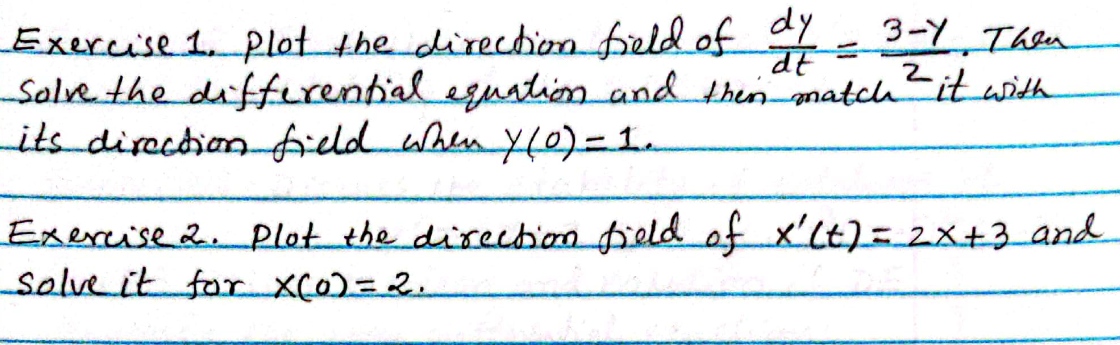 Exercise 1. Plot the direction field of dy/dt = 3-y/2. Then
Solve the differential equation and then match it with
its direction field when y(0)=1.
Exercise 2. Plot the direction field of x'(t)=2x+3 and
solve it for x(0)=2.